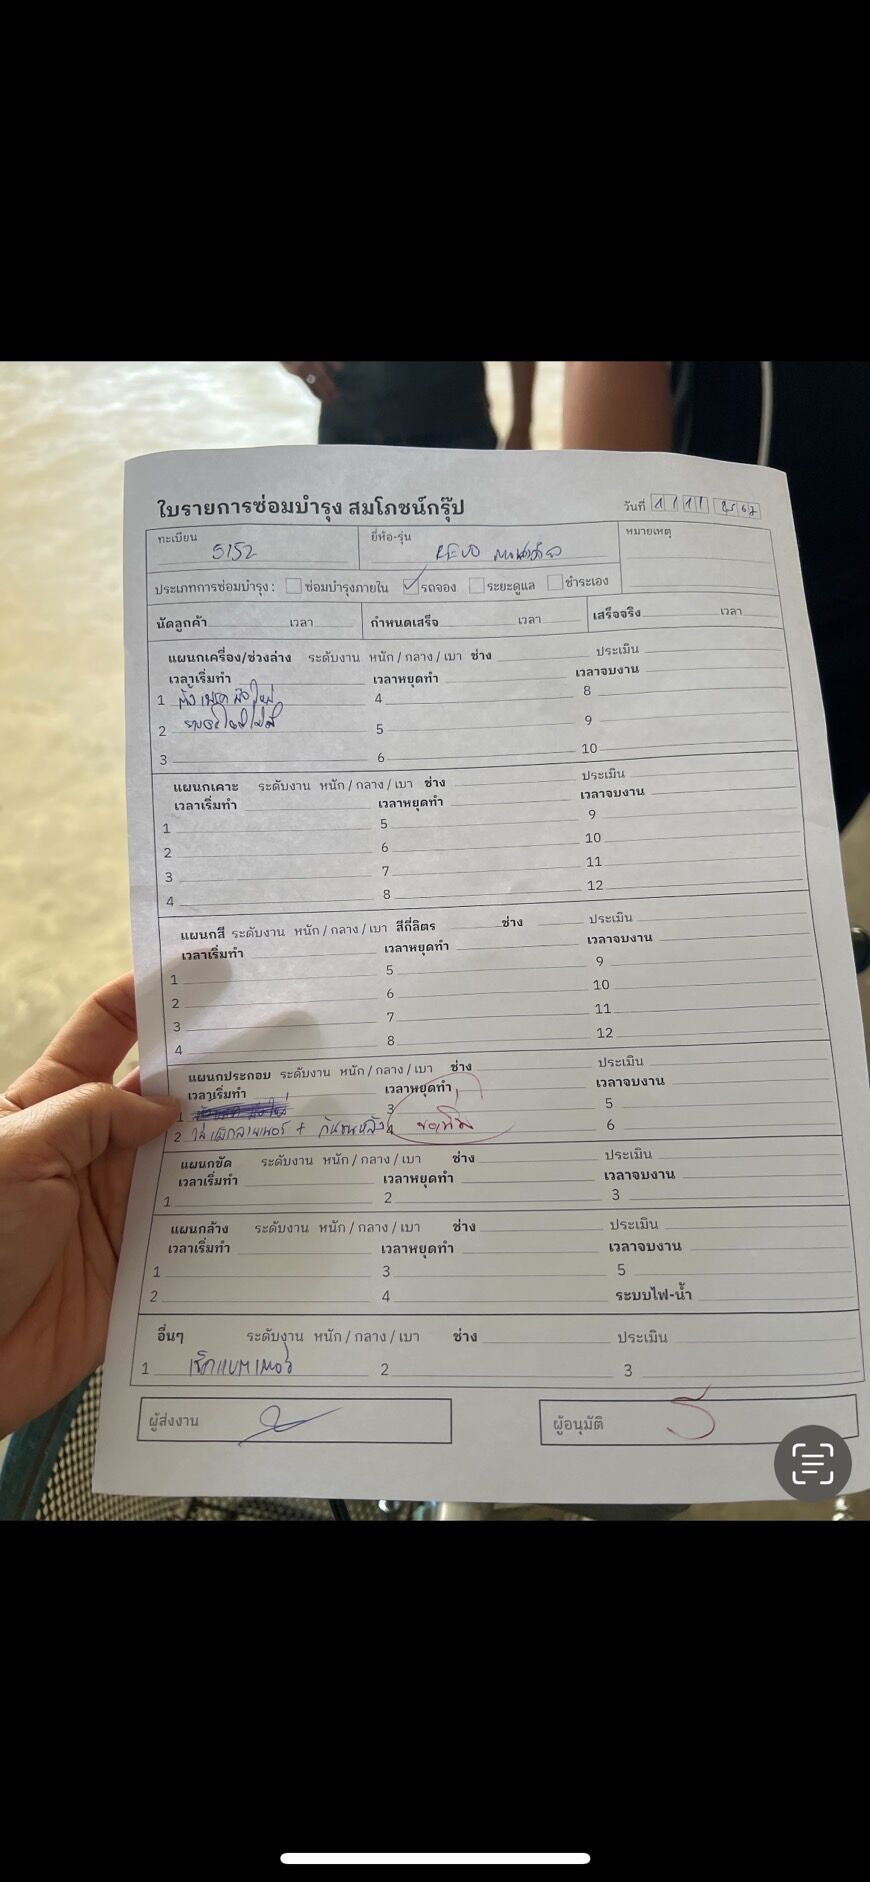 ใบรายการซ่อมบำรุง สมโภชน์กรุ๊ป
วันที่ 1 / 11 / 2567
ทะเบียน 5152 ยี่ห้อ-รุ่น REVO หมายเหตุ
ประเภทการซ่อมบำรุง : ซ่อมบำรุงภายใน รถจอง ระยะดูแล ชำระเอง
นัดลูกค้า เวลา กำหนดเสร็จ เวลา เสร็จจริง เวลา
แผนกเครื่อง/ช่วงล่าง ระดับงาน หนัก / กลาง / เบา ช่าง ประเมิน
เวลาเริ่มทำ เวลาหยุดทำ เวลาจบงาน
1 ตั้งเบรคมือใหม่ 4 8
2 5 9
3 6 10
แผนกเคาะ ระดับงาน หนัก / กลาง / เบา ช่าง ประเมิน
เวลาเริ่มทำ เวลาหยุดทำ เวลาจบงาน
1 5 9
2 6 10
3 7 11
4 8 12
แผนกสี ระดับงาน หนัก / กลาง / เบา สีกี่ลิตร ช่าง ประเมิน
เวลาเริ่มทำ เวลาหยุดทำ เวลาจบงาน
1 5 9
2 6 10
3 7 11
4 8 12
แผนกประกอบ ระดับงาน หนัก / กลาง / เบา ช่าง ประเมิน
เวลาเริ่มทำ เวลาหยุดทำ เวลาจบงาน
1 3 5
2 ใส่ + กันชนหลัง 4 6
แผนกขัด ระดับงาน หนัก / กลาง / เบา ช่าง ประเมิน
เวลาเริ่มทำ เวลาหยุดทำ เวลาจบงาน
1 2 3
แผนกล้าง ระดับงาน หนัก / กลาง / เบา ช่าง ประเมิน
เวลาเริ่มทำ เวลาหยุดทำ เวลาจบงาน
1 3 5
2 4 ระบบไฟ-น้ำ
อื่นๆ ระดับงาน หนัก / กลาง / เบา ช่าง ประเมิน
1 เช็คแบตเตอรี่ 2 3
ผู้ส่งงาน ผู้อนุมัติ